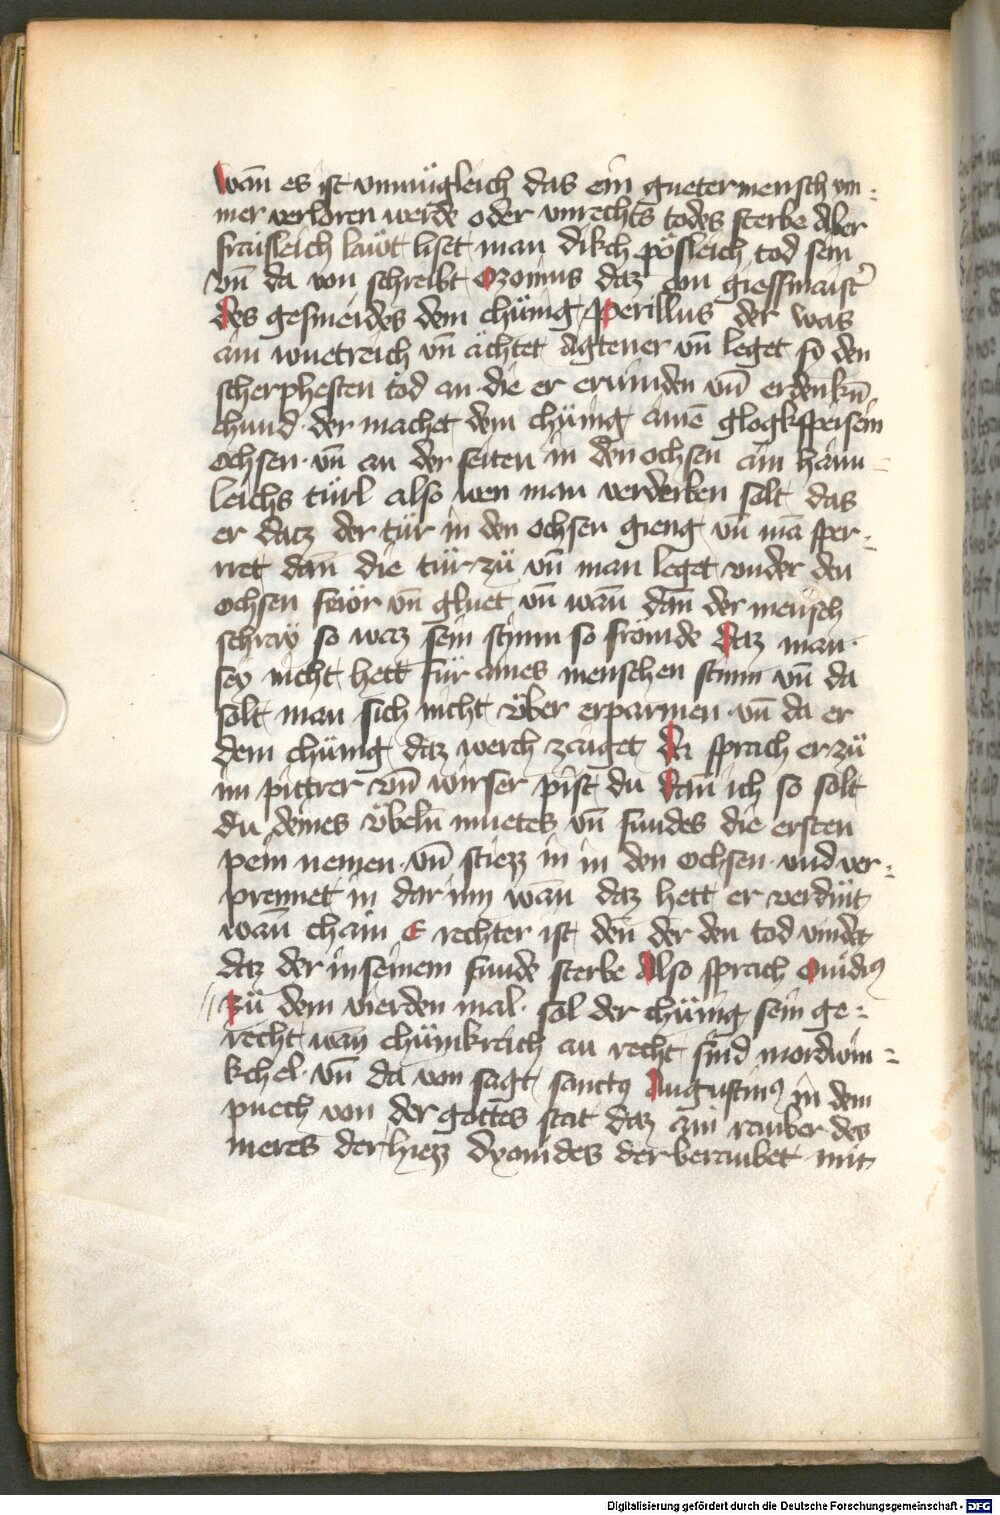 wan̄ es ist vnmügleich das ein gueter mensch vm-
mer verloren werde oder vnrechts todes sterbe Aber
fraisleich läwt liset man dikch pösleich tod sein
vn̄ da von schreibt Ozomus daz ein giessmaist̉
des gesmeides dem chünig Perillus der was
ain wuetreich vn̄ ächtet Agtener vn̄ leget so den
scherphesten tod an die er eruinden vn̄ erdenkn̄
chund der machet dem chünig ainē glogkspeisein
ochsen vn̄ an der seiten in den ochsen ain haim-
leichs türl also wen man verderben solt das
er dacz der tür in den ochsen gieng vn̄ mā sper-
ret dan̄ die tür zü vn̄ man leget vnder den
ochsen feẅr vn̄ gluet vn̄ wan̄ dan̄ der mensch
schraÿ so waz sein stimm so frömde daz man
seÿ nicht hett für aines menschen stimm vn̄ da
solt man sich nicht vber erparmen vn̄ da er
dem chünig daz werch zaiget da sprach er zü
im pittrer vn̄ wirser pist du dan̄ ich so solt
du deines vbeln̄ muetes vn̄ fundes die ersten
pein nemen vn̄ stiezz in in den ochsen vnd ver-
prennet in dar inn wan̄ daz hett er verdint
wan̄ chain E rechter ist den̄ der den tod vindet
daz der in seinem funde sterbe Also sprach Ouidiꝰ
zü dem vierden mal sol der chünig sein ge-
recht wan̄ chünikreich an recht sind mordwin-
kchel vn̄ da von sagt sanctꝰ Augustinꝰ in dem
puech von der gottes stat daz ain rauber des
meres der hiezz dyomides der beraubet mit
Digitalisierung gefördert durch die Deutsche Forschungsgemeinschaft - DFG